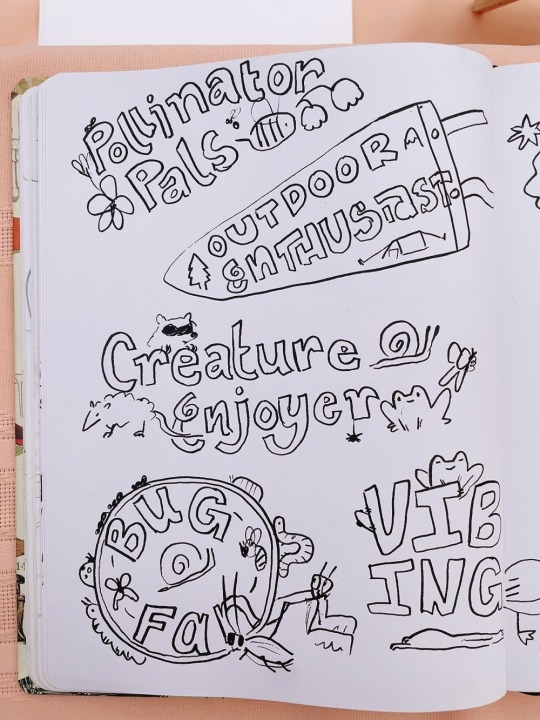 Pollinator
Pals
OUTDOOR
ENTHUSIAST
Creature
enjoyer
BUG
Fan
VIB
ING